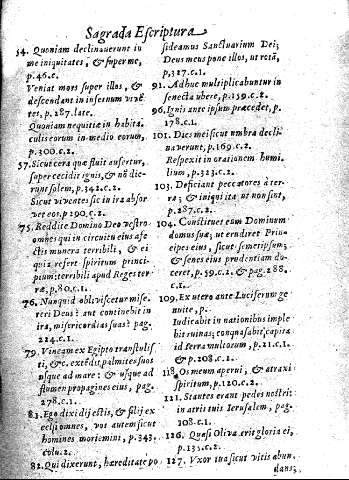 Sagrada Escriptura
54. Quoniam declinauerunt in
me iniquitates, & super me,
p.46.c.
Veniat mors super illos, &
descendant in infernum viuē
tes, p.287.late.
Quoniam nequitiæ in habita
culis eorum in medio eorum,
p.300.c.2.
57. Sicut cera quæ fluit auferẽtur,
supercecidit ignis, & nō vide-
runt solem, p.342.c.2.
Sicut viuentes sic in ira absor
vet eos. p.290.c.2.
75. Reddite Domino Deo vestro
omnes qui in circuitu eius afe
ctis munera terribili, & ei
qui aufert spiritum princi-
pium: terribili apud Reges ter
ræ, p.80.c.1.
76. Nunquid obliviscetur mise-
reri Deus? aut continebit in
ira, misericordias suas? pag.
224.c.1.
79. Vineam ex Egipto transtulis
ti, &c. extēdit palmites suos
usque ad mare: & usque ad
flumen propagines eius, pag.
278.c.1.
81. Ego dixi dij estis, & filij ex
celsi omnes, vos autem sicut
homines moriemini, p.343.
col.2.
82. Qui dixerunt, hæreditate po
sideamus Sanctuarium Dei;
Deus meus pone illos, ut rotā,
p.327.c.1.
91. Adhuc multiplicabuntur in
senecta ubere, p.159.c.2.
96. Ignis ante ipsum præcedet, p.
178.c.1.
101. Dies mei sicut umbra decli-
nauerunt, p.169.c.2.
Respexit in orationem humi-
lium, p.323.c.2.
103. Deficiant peccatores à ter-
ra; & iniqui ita ut non sint,
p.287.c.2.
104. Constituet eum Dominum
domus suæ; ut erudiret Prin-
cipes eius, sicut semetipsum;
& senes eius prudentiam do-
ceret, p.59.c.2. & pag.288.
c.1.
109. Ex utero ante Luciferum ge
nui te, p.
Iudicabit in nationibus imple
bit ruinas; conquasabit capita
id terra multorum, p.21.c.1.
& p.208.c.1.
118. Os meum aperui, & atraxi
spiritum, p.120.c.2.
121. Stantes erant pedes nostri:
in atrijs tuis Ierusalem, pag.
108.c.1.
126. Quasi Oliva erit gloria ei,
p.135.c.2.
127. Vxor tua sicut vitis abun.
dans;